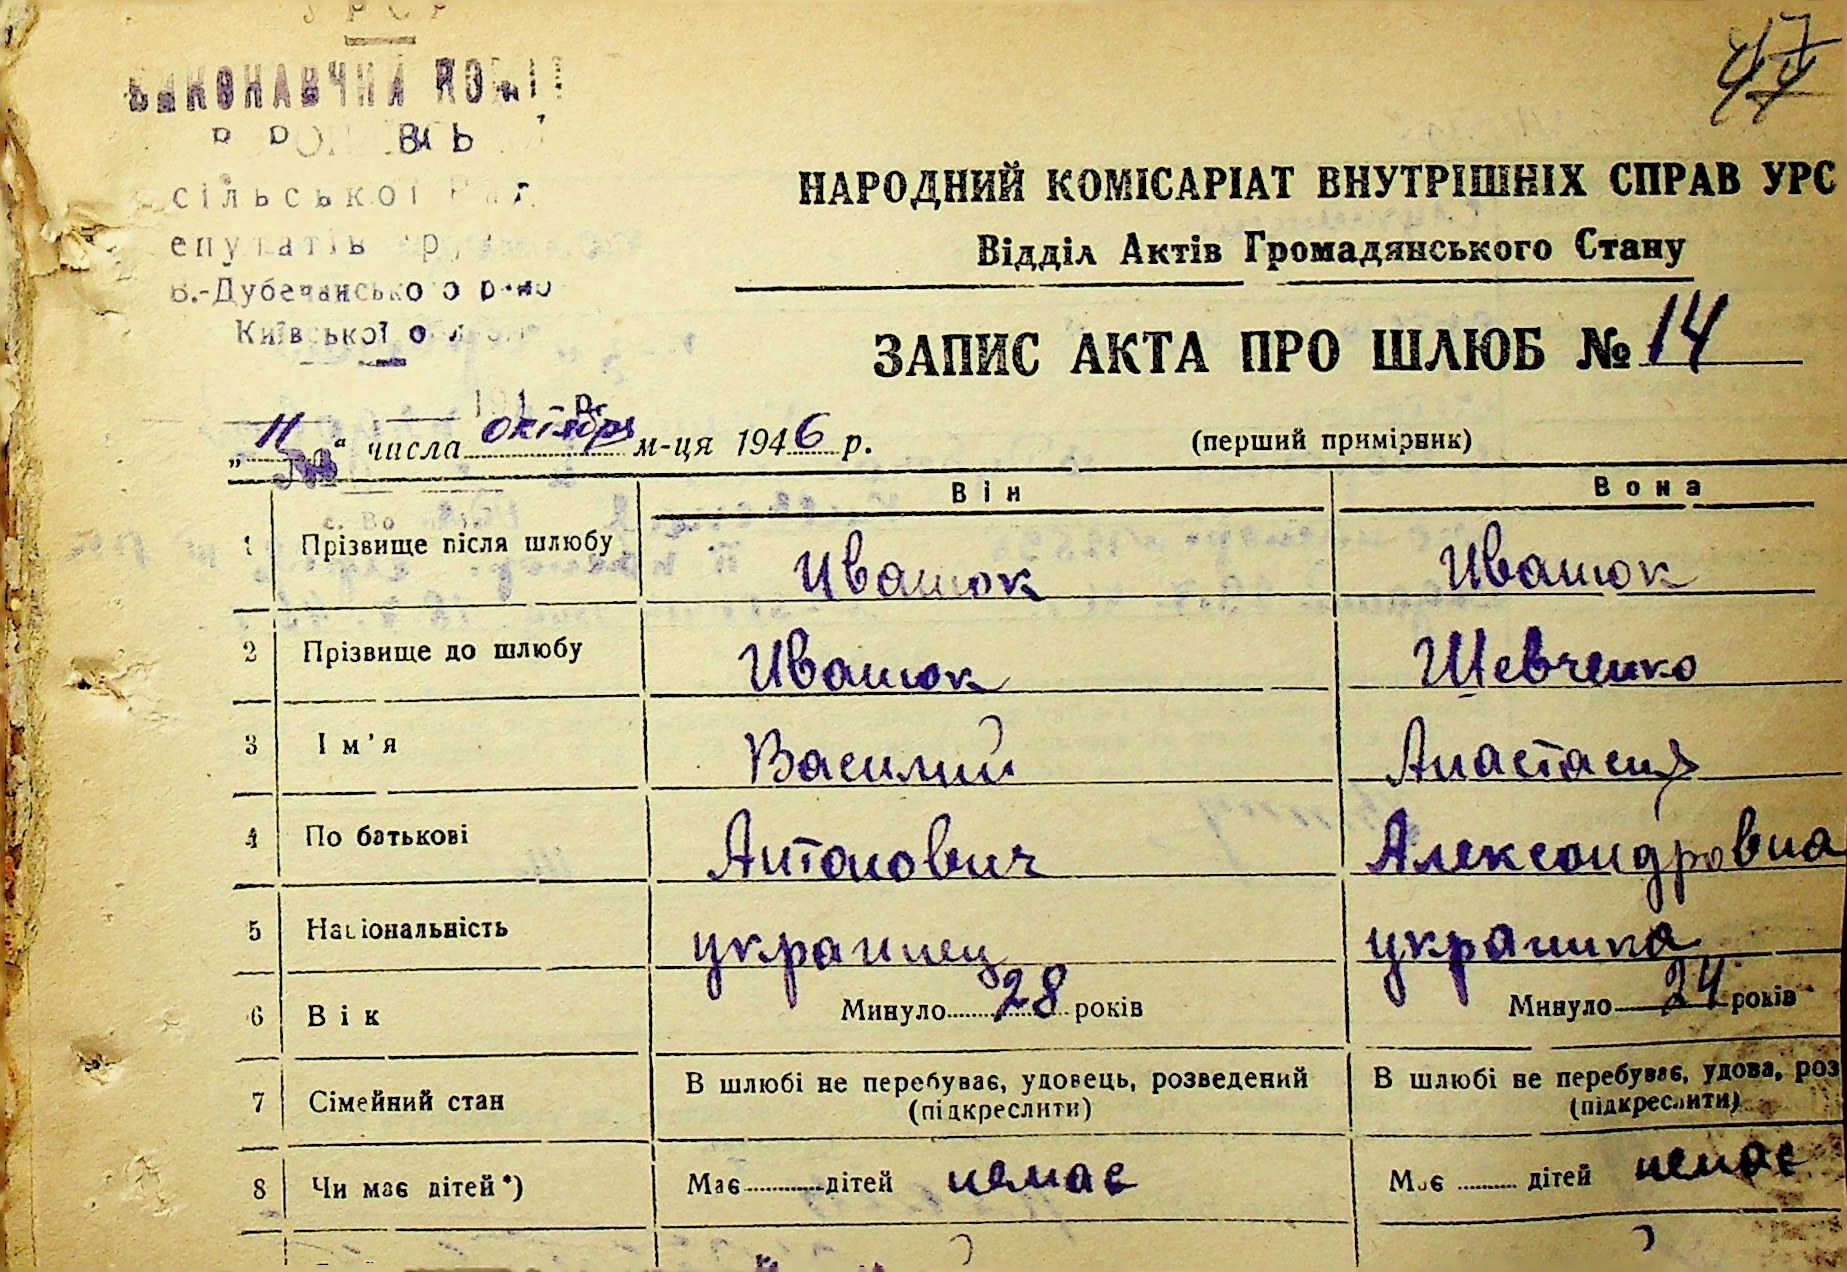 УРСР
47
ВИКОНАВЧИЙ
сільської
В.-Дубечанського
Київської
НАРОДНИЙ КОМІСАРІАТ ВНУТРІШНІХ СПРАВ УРС
Відділ Актів Громадянського Стану
ЗАПИС АКТА ПРО ШЛЮБ № 14
„ 11 “ числа октября м-ця 1946 р.
(перший примірник)
Він Вона
1 Прізвище після шлюбу Ивашюк Ивашюк
2 Прізвище до шлюбу Ивашюк Шевченко
3 Ім'я Василий Анастасия
4 По батькові Антонович Александровна
5 Національність украинец украинка
6 Вік Минуло 28 років Минуло 24 років
7 Сімейний стан В шлюбі не перебуває, удовець, розведений В шлюбі не перебуває, удова, роз
(підкреслити) (підкреслити)
8 Чи має дітей*) Має дітей немає Має дітей немає